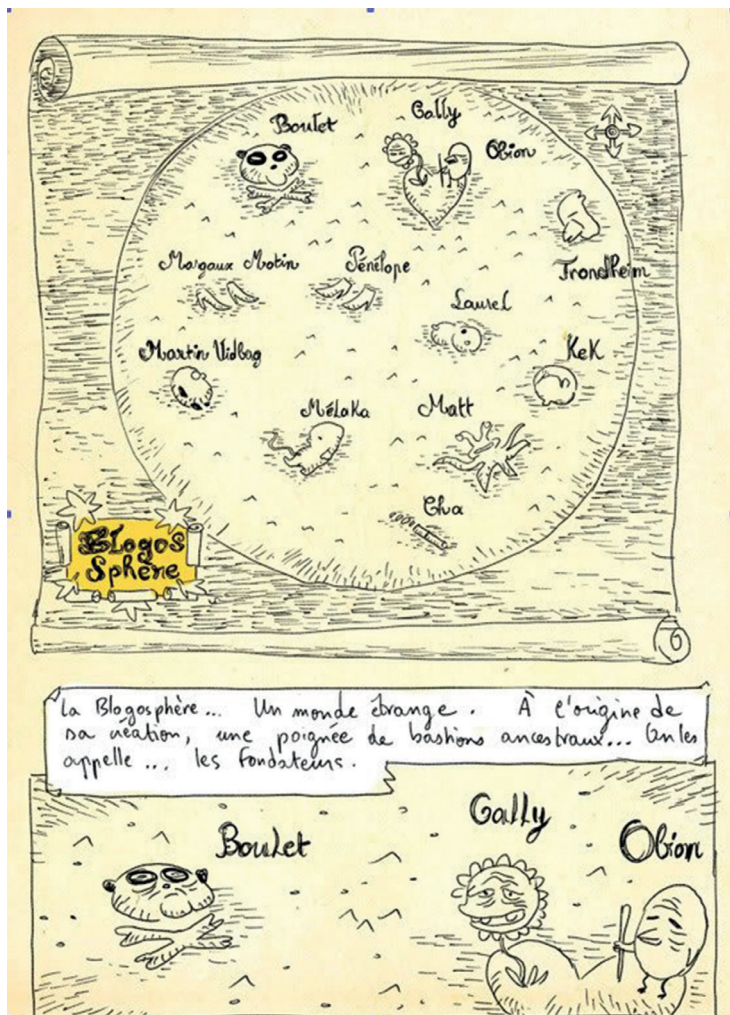 Boulet
Gally
Obion
Trondheim
Margaux Motin
Pénélope
Laurel
Martin Vidbag
Kek
Mélaka
Matt
Cha
Blogos
Sphère
La Blogosphère... Un monde étrange. À l'origine de
sa création, une poignée de bastions ancestraux... On les
appelle... les Fondateurs.
Boulet
Gally
Obion